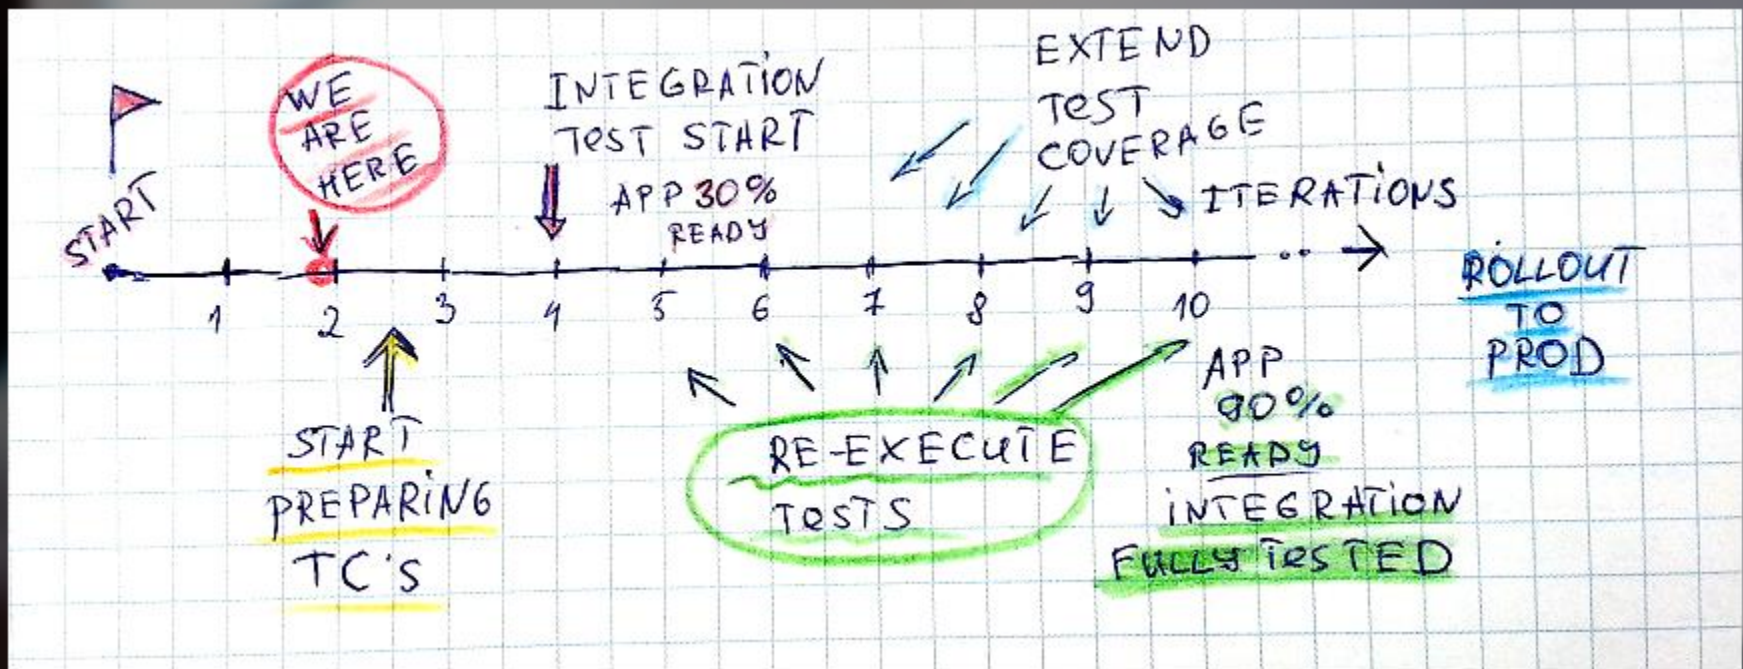 START
WE
ARE
HERE
INTEGRATION
TEST START
APP 30%
READY
EXTEND
TEST
COVERAGE
ITERATIONS
1 2 3 4 5 6 7 8 9 10
ROLLOUT
TO
PROD
START
PREPARING
TC'S
RE-EXECUTE
TESTS
APP
90%
READY
INTEGRATION
FULLY TESTED